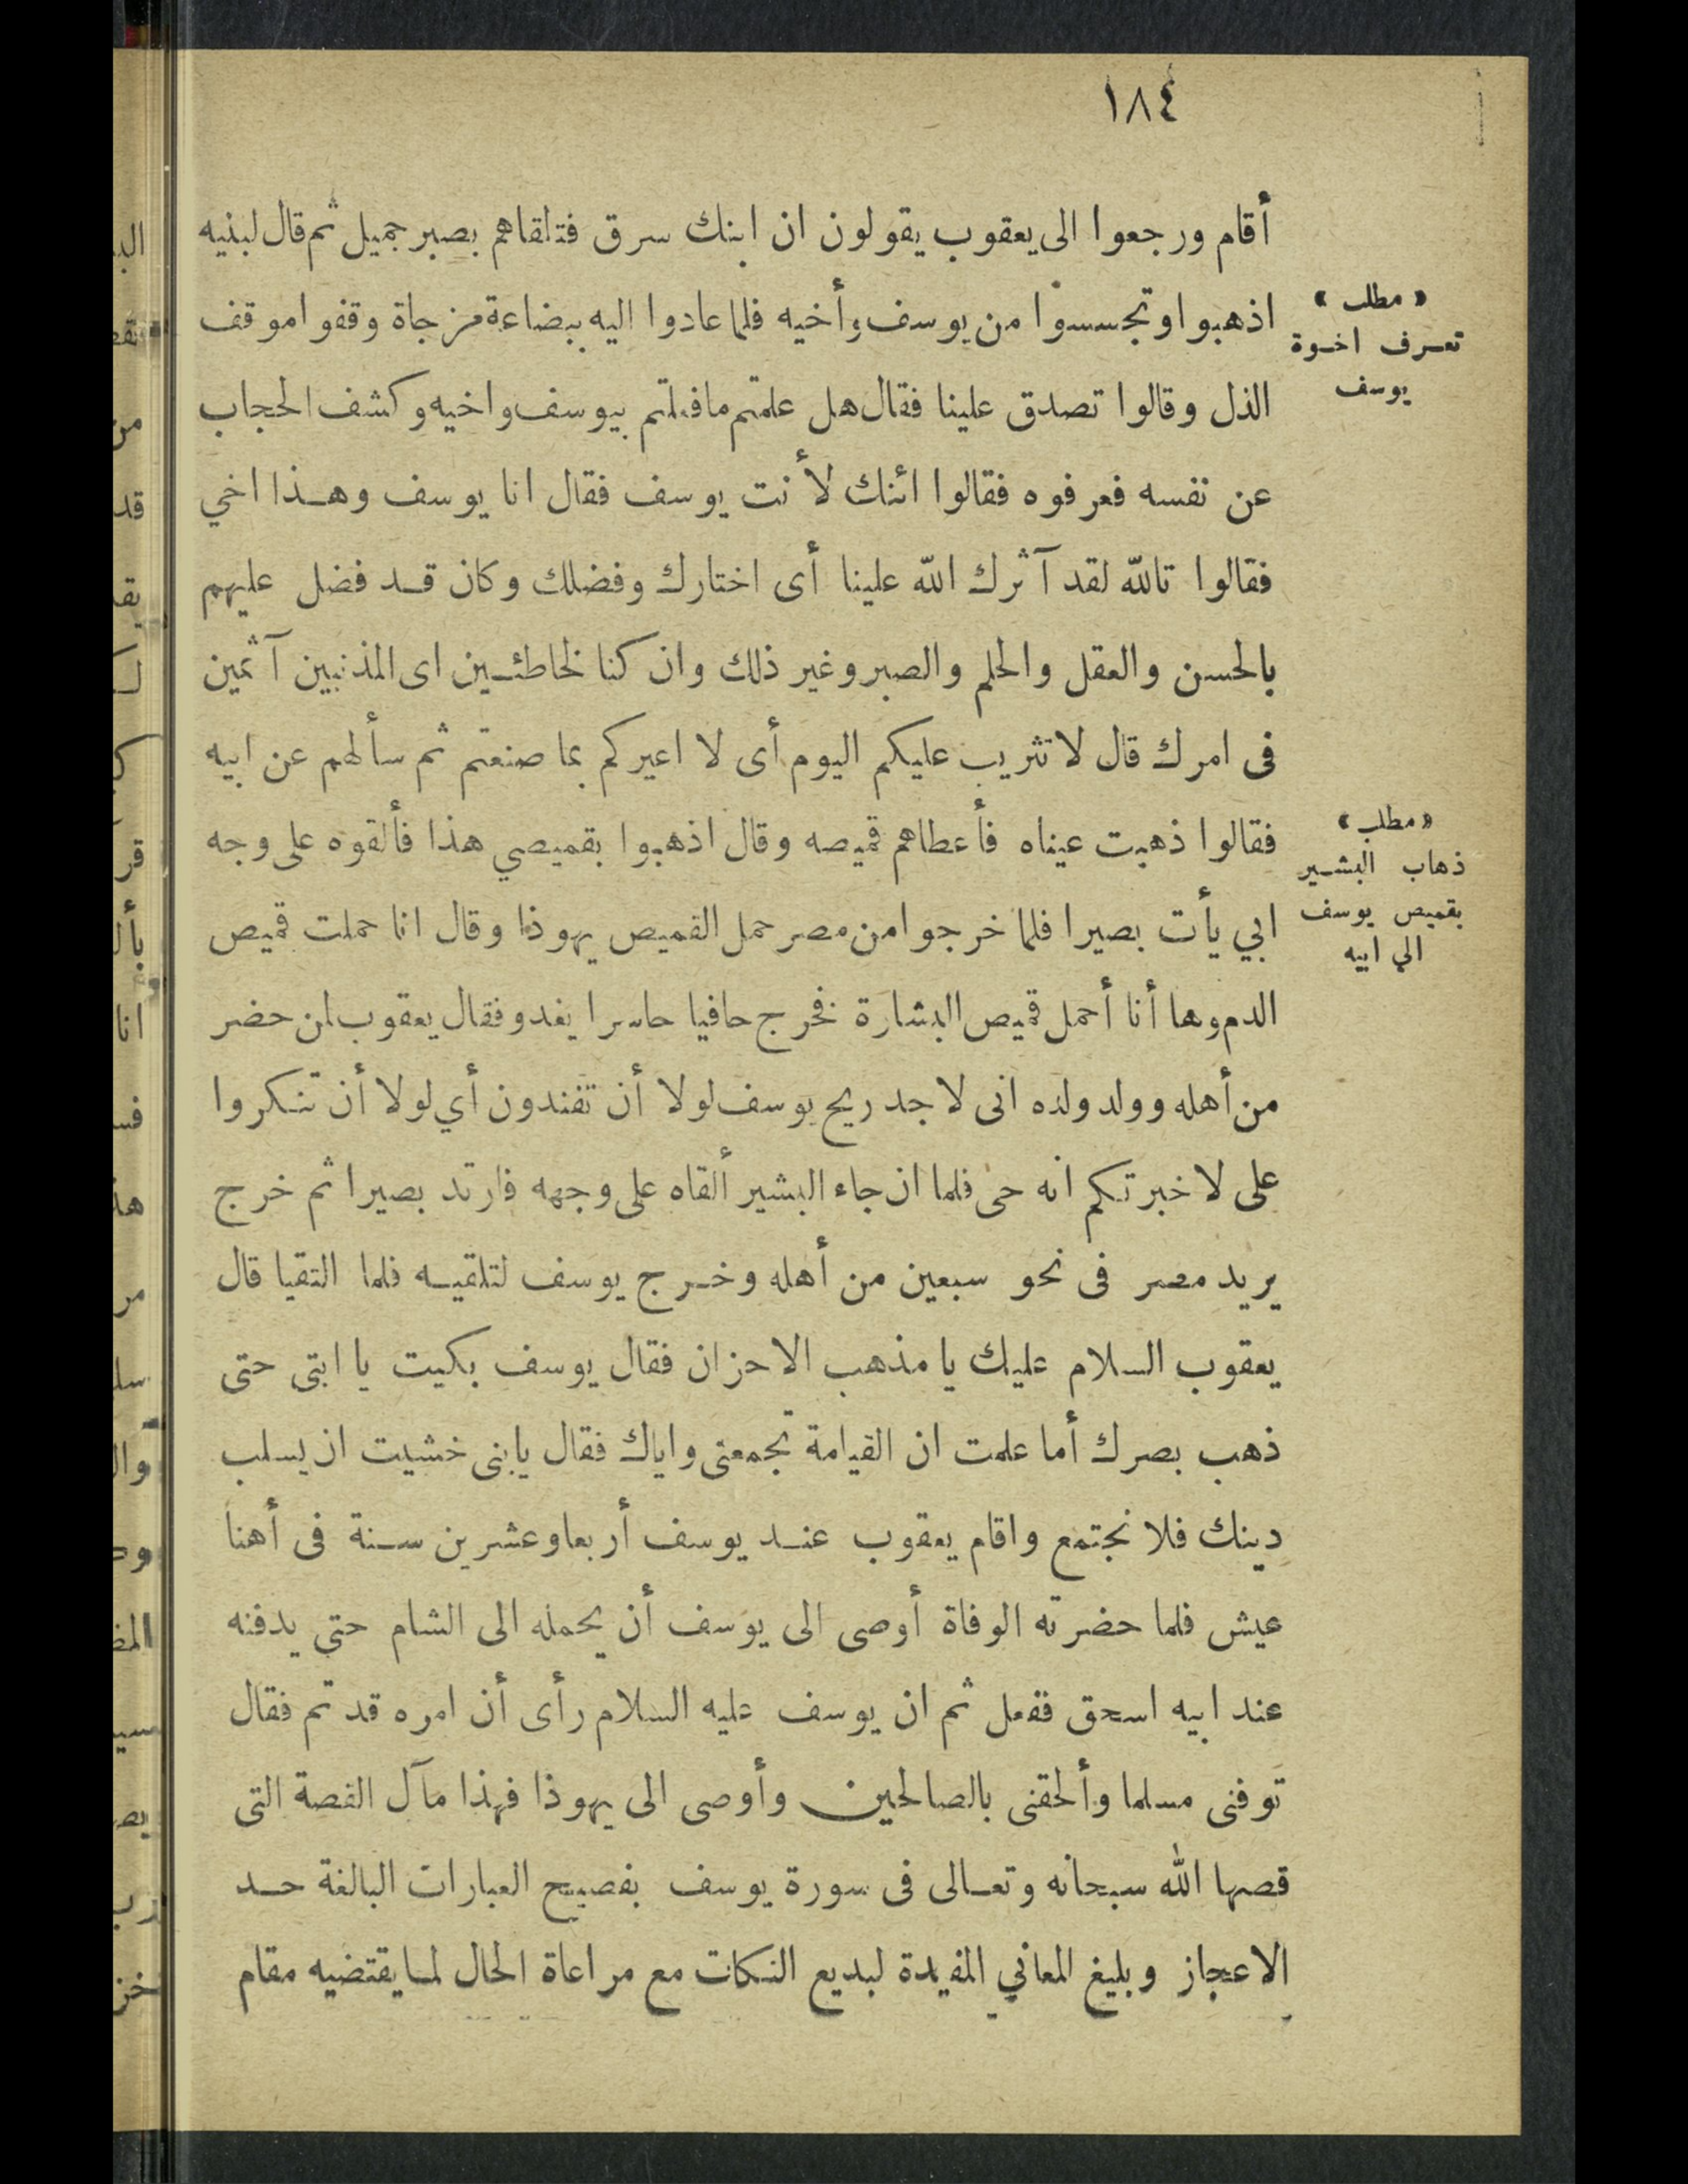 ١٨٤
أقام ورجعوا الى يعقوب يقولون ان ابنك سرق فتلقاهم بصبر جميل ثم قال لبنيه
اذهبوا وتجسسوا من يوسف وأخيه فلما عادوا اليه ببضاعة مزجاة وقفوا موقف
«مطلب»
تعرف اخوة
يوسف
الذل وقالوا تصدق علينا فقال هل علمتم ما فعلتم بيوسف واخيه وكشف الحجاب
عن نفسه فعرفوه فقالوا ائنك لأنت يوسف فقال انا يوسف وهذا اخي
فقالوا تالله لقد آثرك الله علينا أى اختارك وفضلك وكان قد فضل عليهم
بالحسن والعقل والحلم والصبر وغير ذلك وان كنا لخاطئين اى المذنبين آثمين
فى امرك قال لا تثريب عليكم اليوم أى لا اعيركم بما صنعتم ثم سألهم عن ابيه
فقالوا ذهبت عيناه فأعطاهم قميصه وقال اذهبوا بقميصي هذا فألقوه على وجه
«مطلب»
ذهاب البشير
بقميص يوسف
الي ابيه
ابي يأت بصيرا فلما خرجوا من مصر حمل القميص يهوذا وقال انا حملت قميص
الدم وها أنا أحمل قميص البشارة فخرج حافيا حاسرا يغدو فقال يعقوب لمن حضر
من أهله وولد ولده انى لاجد ريح يوسف لولا أن تفندون أي لولا أن تنكروا
على لاخبرتكم انه حى فلما ان جاء البشير ألقاه على وجهه فارتد بصيرا ثم خرج
يريد مصر فى نحو سبعين من أهله وخرج يوسف لتلقيه فلما التقيا قال
يعقوب السلام عليك يا مذهب الاحزان فقال يوسف بكيت يا ابتى حتى
ذهب بصرك أما علمت ان القيامة تجمعنى واياك فقال يابنى خشيت ان يسلب
دينك فلا نجتمع واقام يعقوب عند يوسف أربعا وعشرين سنة فى أهنا
عيش فلما حضرته الوفاة أوصى الى يوسف أن يحمله الى الشام حتى يدفنه
عند ابيه اسحق ففعل ثم ان يوسف عليه السلام رأى أن امره قد تم فقال
توفنى مسلما وألحقنى بالصالحين وأوصى الى يهوذا فهذا مآل القصة التى
قصها الله سبحانه وتعالى فى سورة يوسف بفصيح العبارات البالغة حد
الاعجاز وبليغ المعاني المفيدة لبديع النكات مع مراعاة الحال لما يقتضيه مقام